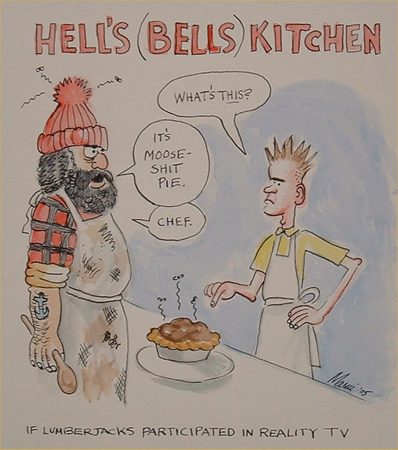 HELL'S (BELLS) KITCHEN
WHAT'S THIS?
IT'S
MOOSE-
SHIT
PIE.
CHEF.
'05
IF LUMBERJACKS PARTICIPATED IN REALITY TV